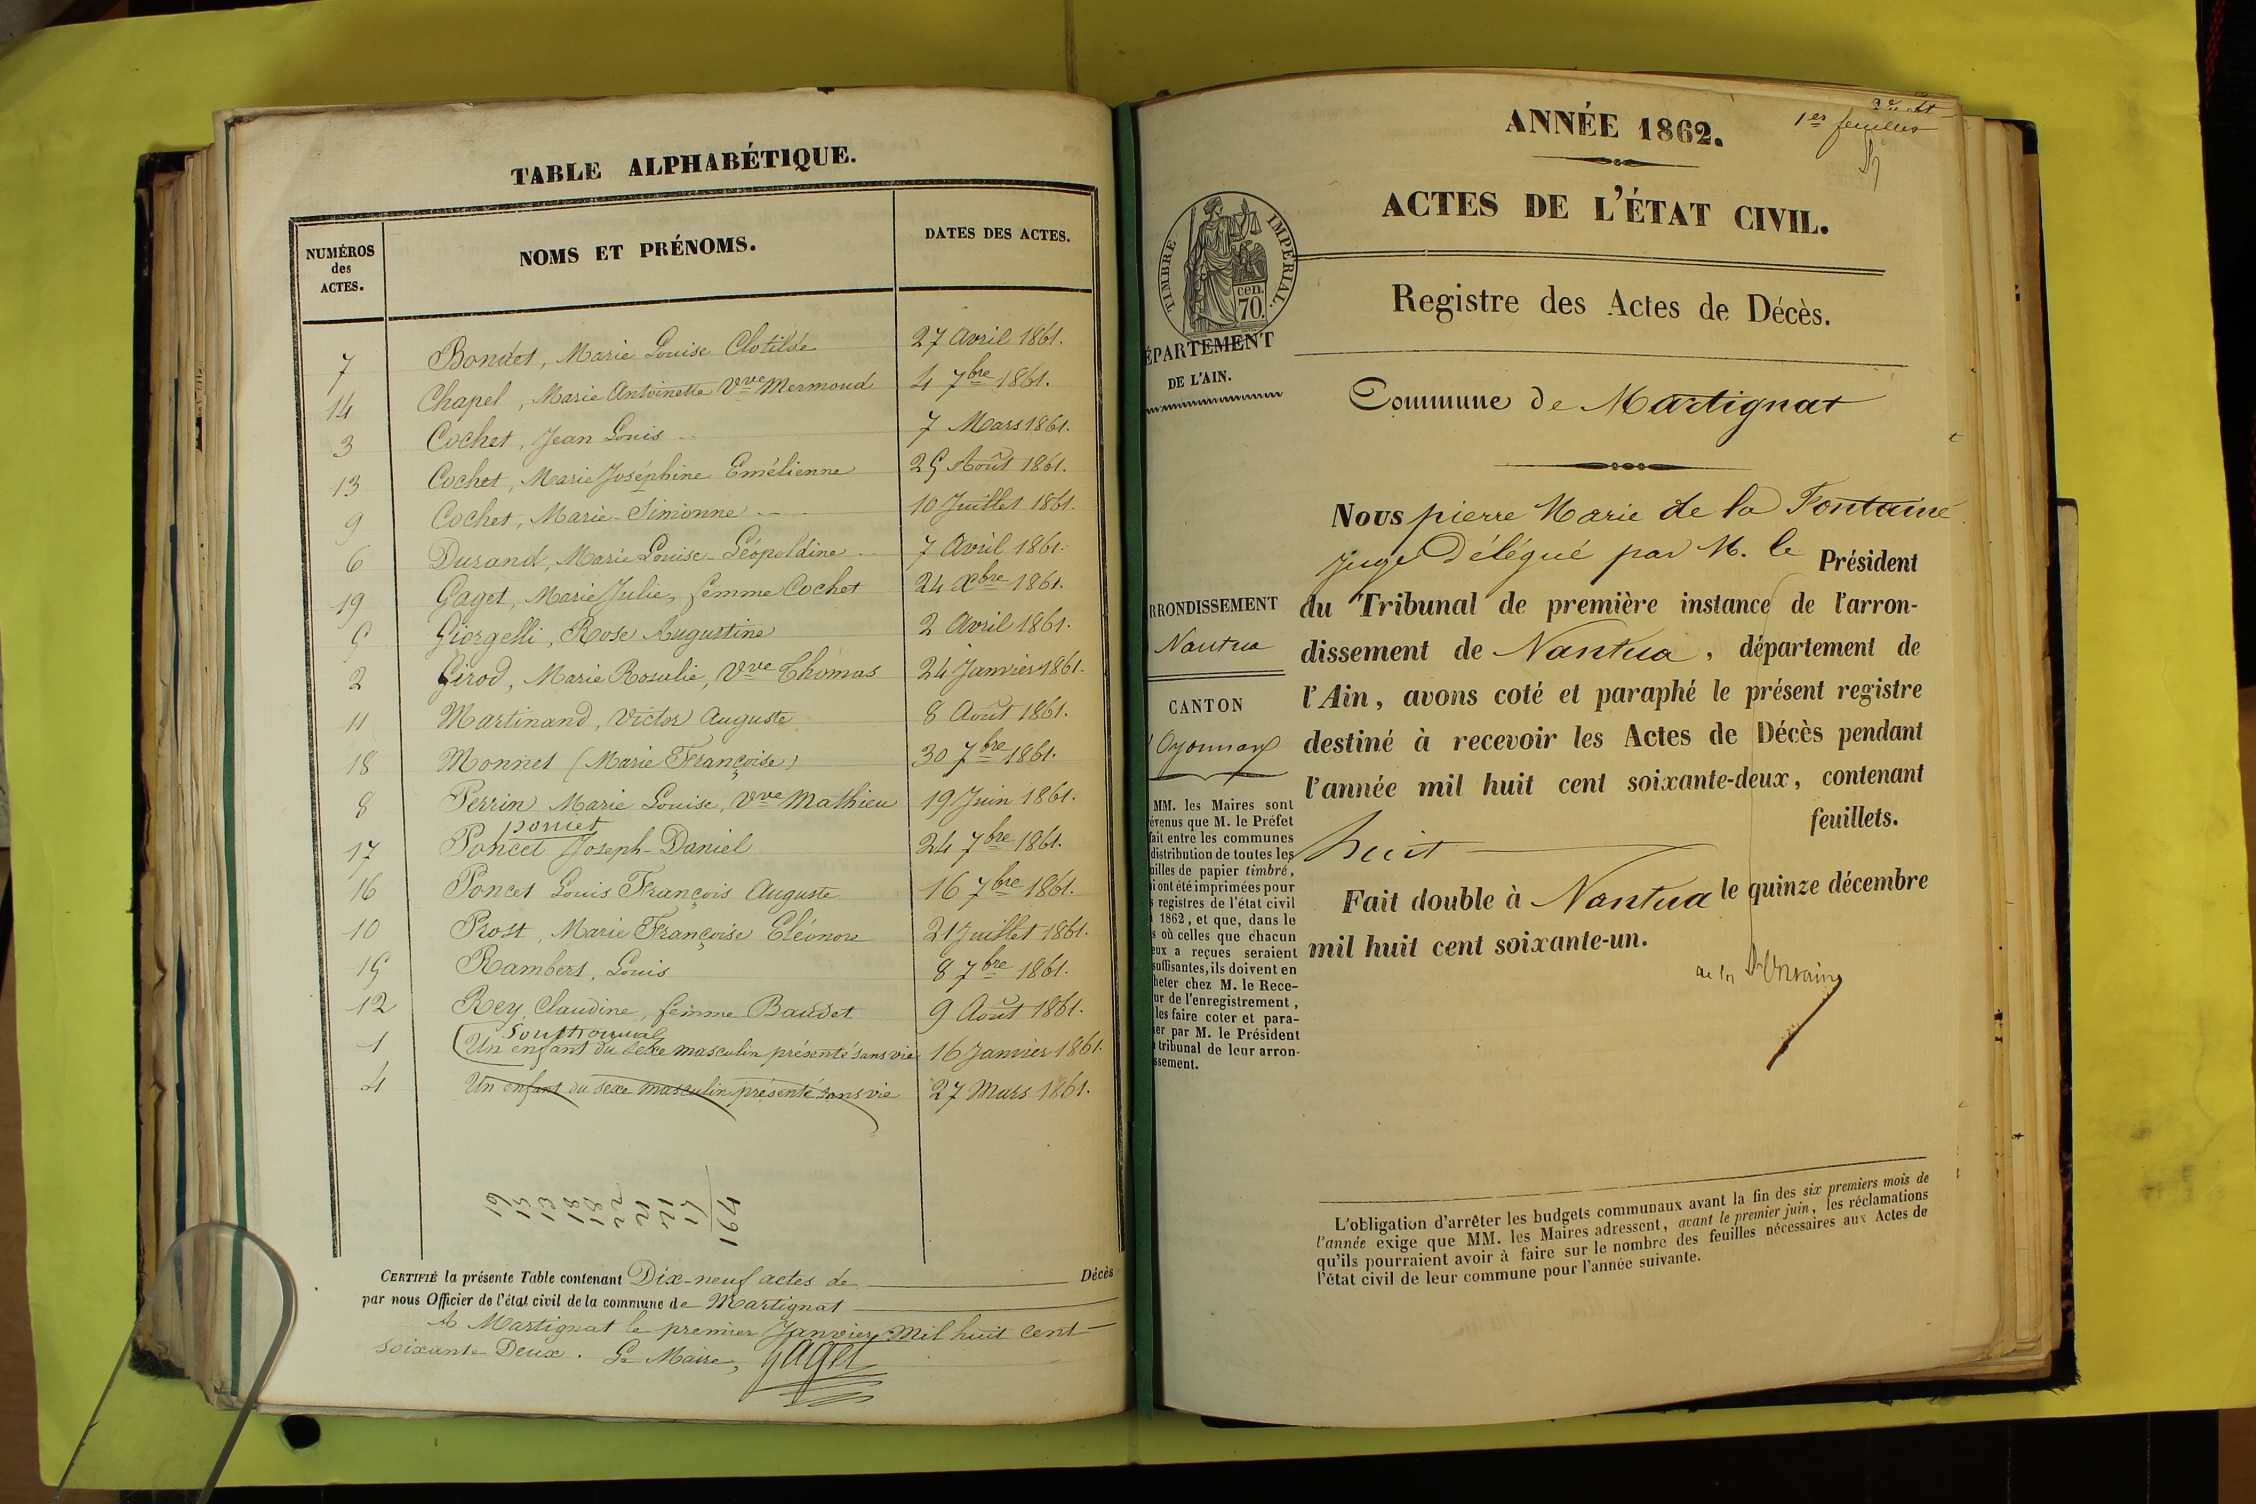 TABLE ALPHABÉTIQUE.
NUMÉROS des ACTES. NOMS ET PRÉNOMS. DATES DES ACTES.
7 Bondet, Marie Louise Clotilde 27 Avril 1861.
14 Chapel, Marie Antoinette Vve Mermoud 4 7bre 1861.
3 Cochet, Jean Louis 7 Mars 1861.
13 Cochet, Marie Joséphine Emélienne 25 Août 1861.
9 Cochet, Marie-Simonne 10 Juillet 1861.
6 Durand, Marie Louise-Léopoldine 7 Avril 1861.
19 Gaget, Marie Julie, femme Cochet 24 Xbre 1861.
5 Giorgelli, Rose Augustine 2 Avril 1861.
2 Girod, Marie Rosalie, Vve Thomas 24 Janvier 1861.
11 Martinand, Victor Auguste 8 Août 1861.
18 Monnet (Marie Françoise) 30 7bre 1861.
8 Perrin Marie Louise, Vve Mathieu 19 Juin 1861.
17 Poncet Joseph-Daniel 24 7bre 1861.
16 Poncet Louis François Auguste 16 7bre 1861.
10 Prost, Marie Françoise Eléonore 21 Juillet 1861.
15 Rambert, Louis 8 7bre 1861.
12 Rey, Claudine, femme Baudet 9 Août 1861.
1 Un enfant du sexe masculin présenté sans vie 16 Janvier 1861.
4 Un enfant du sexe masculin présenté sans vie 27 Mars 1861.
19
15
13
18
18
22
21
21
17
164
CERTIFIÉ la présente Table contenant Dix-neuf actes de Décès
par nous Officier de l'état civil de la commune de Martignat
A Martignat le premier Janvier Mil huit cent
soixante Deux. Le Maire, Gaget
1er feuillet
ANNÉE 1862.
ACTES DE L'ÉTAT CIVIL.
TIMBRE IMPÉRIAL.
cen.
70.
Registre des Actes de Décès.
ÉPARTEMENT
DE L'AIN.
Commune de Martignat
Nous pierre Marie de la Fontaine
Juge Délégué par M. le Président
du Tribunal de première instance de l'arron-
dissement de Nantua, département de
l'Ain, avons coté et paraphé le présent registre
destiné à recevoir les Actes de Décès pendant
l'année mil huit cent soixante-deux, contenant
huit feuillets.
Fait double à Nantua le quinze décembre
mil huit cent soixante-un.
RRONDISSEMENT
Nantua
CANTON
Oyonnax
MM. les Maires sont
évenus que M. le Préfet
fait entre les communes
distribution de toutes les
uilles de papier timbré,
i ont été imprimées pour
s registres de l'état civil
1862, et que, dans le
s où celles que chacun
eux a reçues seraient
suffisantes, ils doivent en
heter chez M. le Rece-
ur de l'enregistrement,
les faire coter et para-
er par M. le Président
tribunal de leur arron-
ssement.
L'obligation d'arrêter les budgets communaux avant la fin des six premiers mois de
l'année exige que MM. les Maires adressent, avant le premier juin, les réclamations
qu'ils pourraient avoir à faire sur le nombre des feuilles nécessaires aux Actes de
l'état civil de leur commune pour l'année suivante.